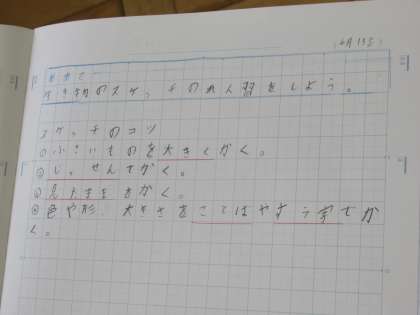 (4月13日)
めあて
生き物のスケッチのれん習をしよう。
スケッチのコツ
①小さいものを大きくかく。
②1本せんでかく。
③見たままをかく。
④色や形、大きさをことばやすう字でかく。